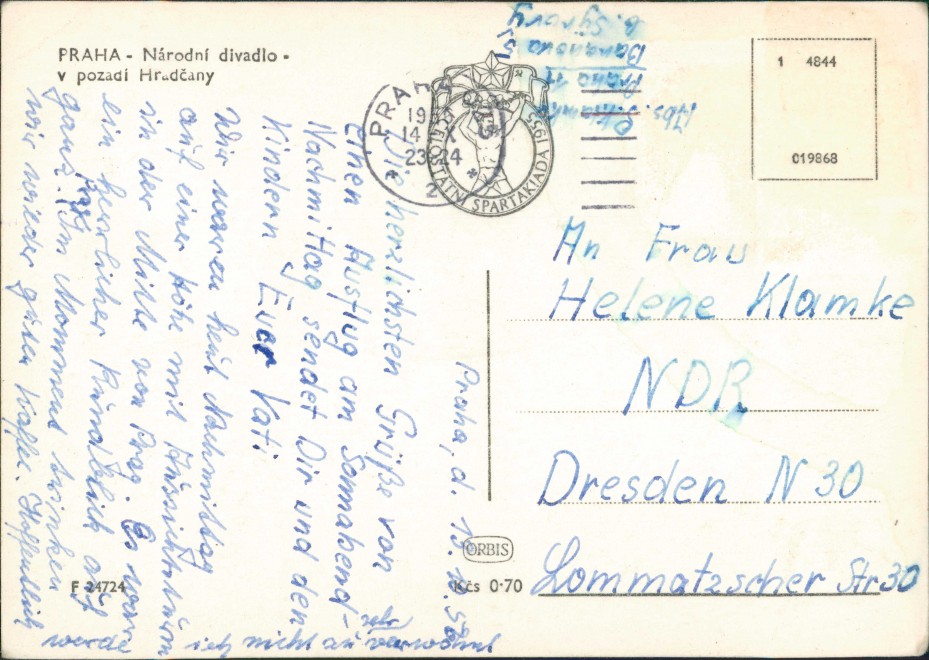 PRAHA - Národní divadlo -
v pozadí Hradčany
1 4844
019868
PRAHA
14 X
23-24
2
CELOSTÁTNÍ SPARTAKIÁDA 1955
Abs.:
Klamke
Praha 11
An Frau
Helene Klamke
NDR
Dresden N 30
Lommatzscher Str 30
Praha, d.
Die herzlichsten Grüße von
einen Ausflug am Sonnabend-
Nachmittag sendet Dir und den
Kindern Euer Vati
Wir waren heut Nachmittag
auf einer Höhe mit Aussichtsturm
in der Mitte von Prag. Es war
ein herrlicher Rundblick auf
ganz Prag. Im Momment trinken
wir wieder guten Kaffee. Hoffentlich
werde ich nicht zu sehr verwöhnt
ORBIS
F 24724
Kčs 0·70